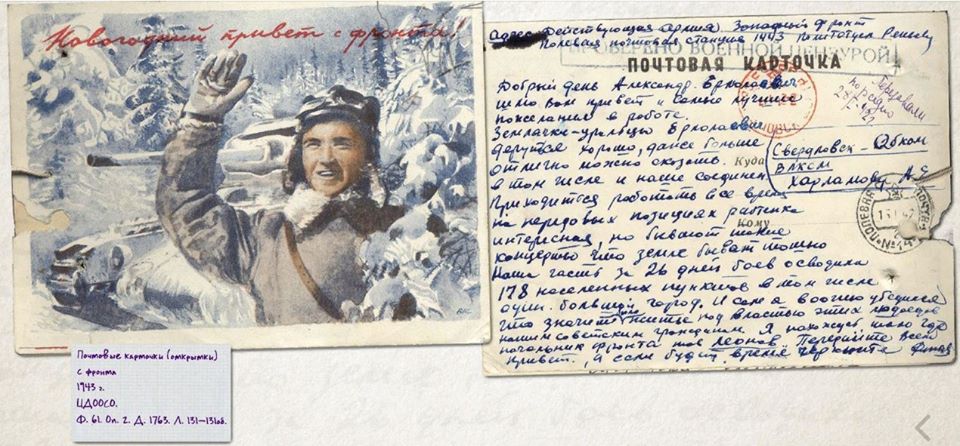 Новогодний привет с фронта!
Почтовые карточки (открытки)
с фронта
1943 г.
ЦДООСО.
Ф. 61. Оп. 2. Д. 1763. Л. 131–131об.
адрес Действующая армия Западный фронт
Полевая почтовая станция 1443
ПРОВЕРЕНО ВОЕННОЙ ЦЕНЗУРОЙ
ПОЧТОВАЯ КАРТОЧКА
Добрый день Александр. Ермолаевич
шлю вам привет и самые лучшие
пожелания в работе.
Земляки-уральцы Ермолаевич
дерутся хорошо, даже больше
отлично можно сказать.
в том числе и наше соединен
Приходится работать все время
на передовых позициях
интересная, но бывают такие
концерты что земле бывает
Наша часть за 26 дней боев освободила
178 населенных пунктов в том числе
один. большой город. И сам я воочию убедился
что значит под властью этих
нашим советским гражданам. Я нахожусь
начальник фронта тов Леонов. Передайте всем
привет. а если будит время
Куда
Свердловск - Обком
ВЛКСМ
Харламову А. Е
Кому
ПОЛЕВАЯ ПОЧТ